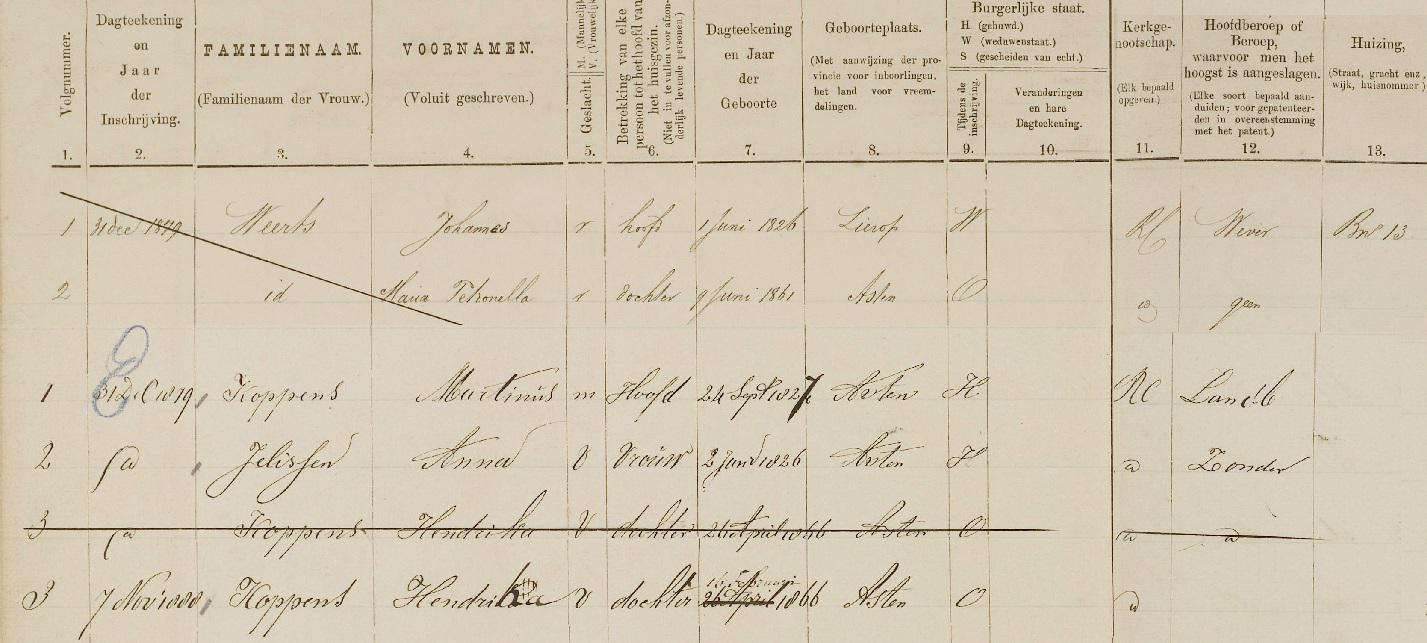 Volgnummer.
Dagteekening
en
Jaar
der
Inschrijving.
FAMILIENAAM.
(Familienaam der Vrouw.)
VOORNAMEN.
(Voluit geschreven.)
Geslacht. M. (Mannelijk) V. (Vrouwelijk)
Betrekking van elke
persoon tot het hoofd van
het huisgezin.
(Niet in te vullen voor afzon-
derlijk levende personen.)
Dagteekening
en Jaar
der
Geboorte
Geboorteplaats.
(Met aanwijzing der pro-
vincie voor inboorlingen,
het land voor vreem-
delingen.
Burgerlijke staat.
H (gehuwd.)
W (weduwenstaat.)
S (gescheiden van echt.)
Tijdens de
inschrijving.
Veranderingen
en hare
Dagteekening.
Kerkge-
nootschap.
(Elk bepaald
opgeven.)
Hoofdberoep of
Beroep,
waarvoor men het
hoogst is aangeslagen.
(Elke soort bepaald aan-
duiden; voor gepatenteer-
den in overeenstemming
met het patent.)
Huizing,
(Straat, gracht enz.,
wijk, huisnommer)
1. 2. 3. 4. 5. 6. 7. 8. 9. 10. 11. 12. 13.
1 31 dec 1879 Weerts Johannes r hoofd 1 Juni 1826 Lierop W RC Wever 13
2 id Maria Petronella r dochter 9 Juni 1861 Asten O geen
1 31 Dec 1879 Koppens Martinus m Hoofd 24 Sept 1827 Asten H RC Landb
2 Jelissen Anna V Vrouw 2 Janr 1826 Asten H Zonder
3 Koppens Hendrika V dochter 26 April 1866 Asten O
16 Februari
3 7 Nov 1888 Koppens Hendrika V dochter 26 April 1866 Asten O